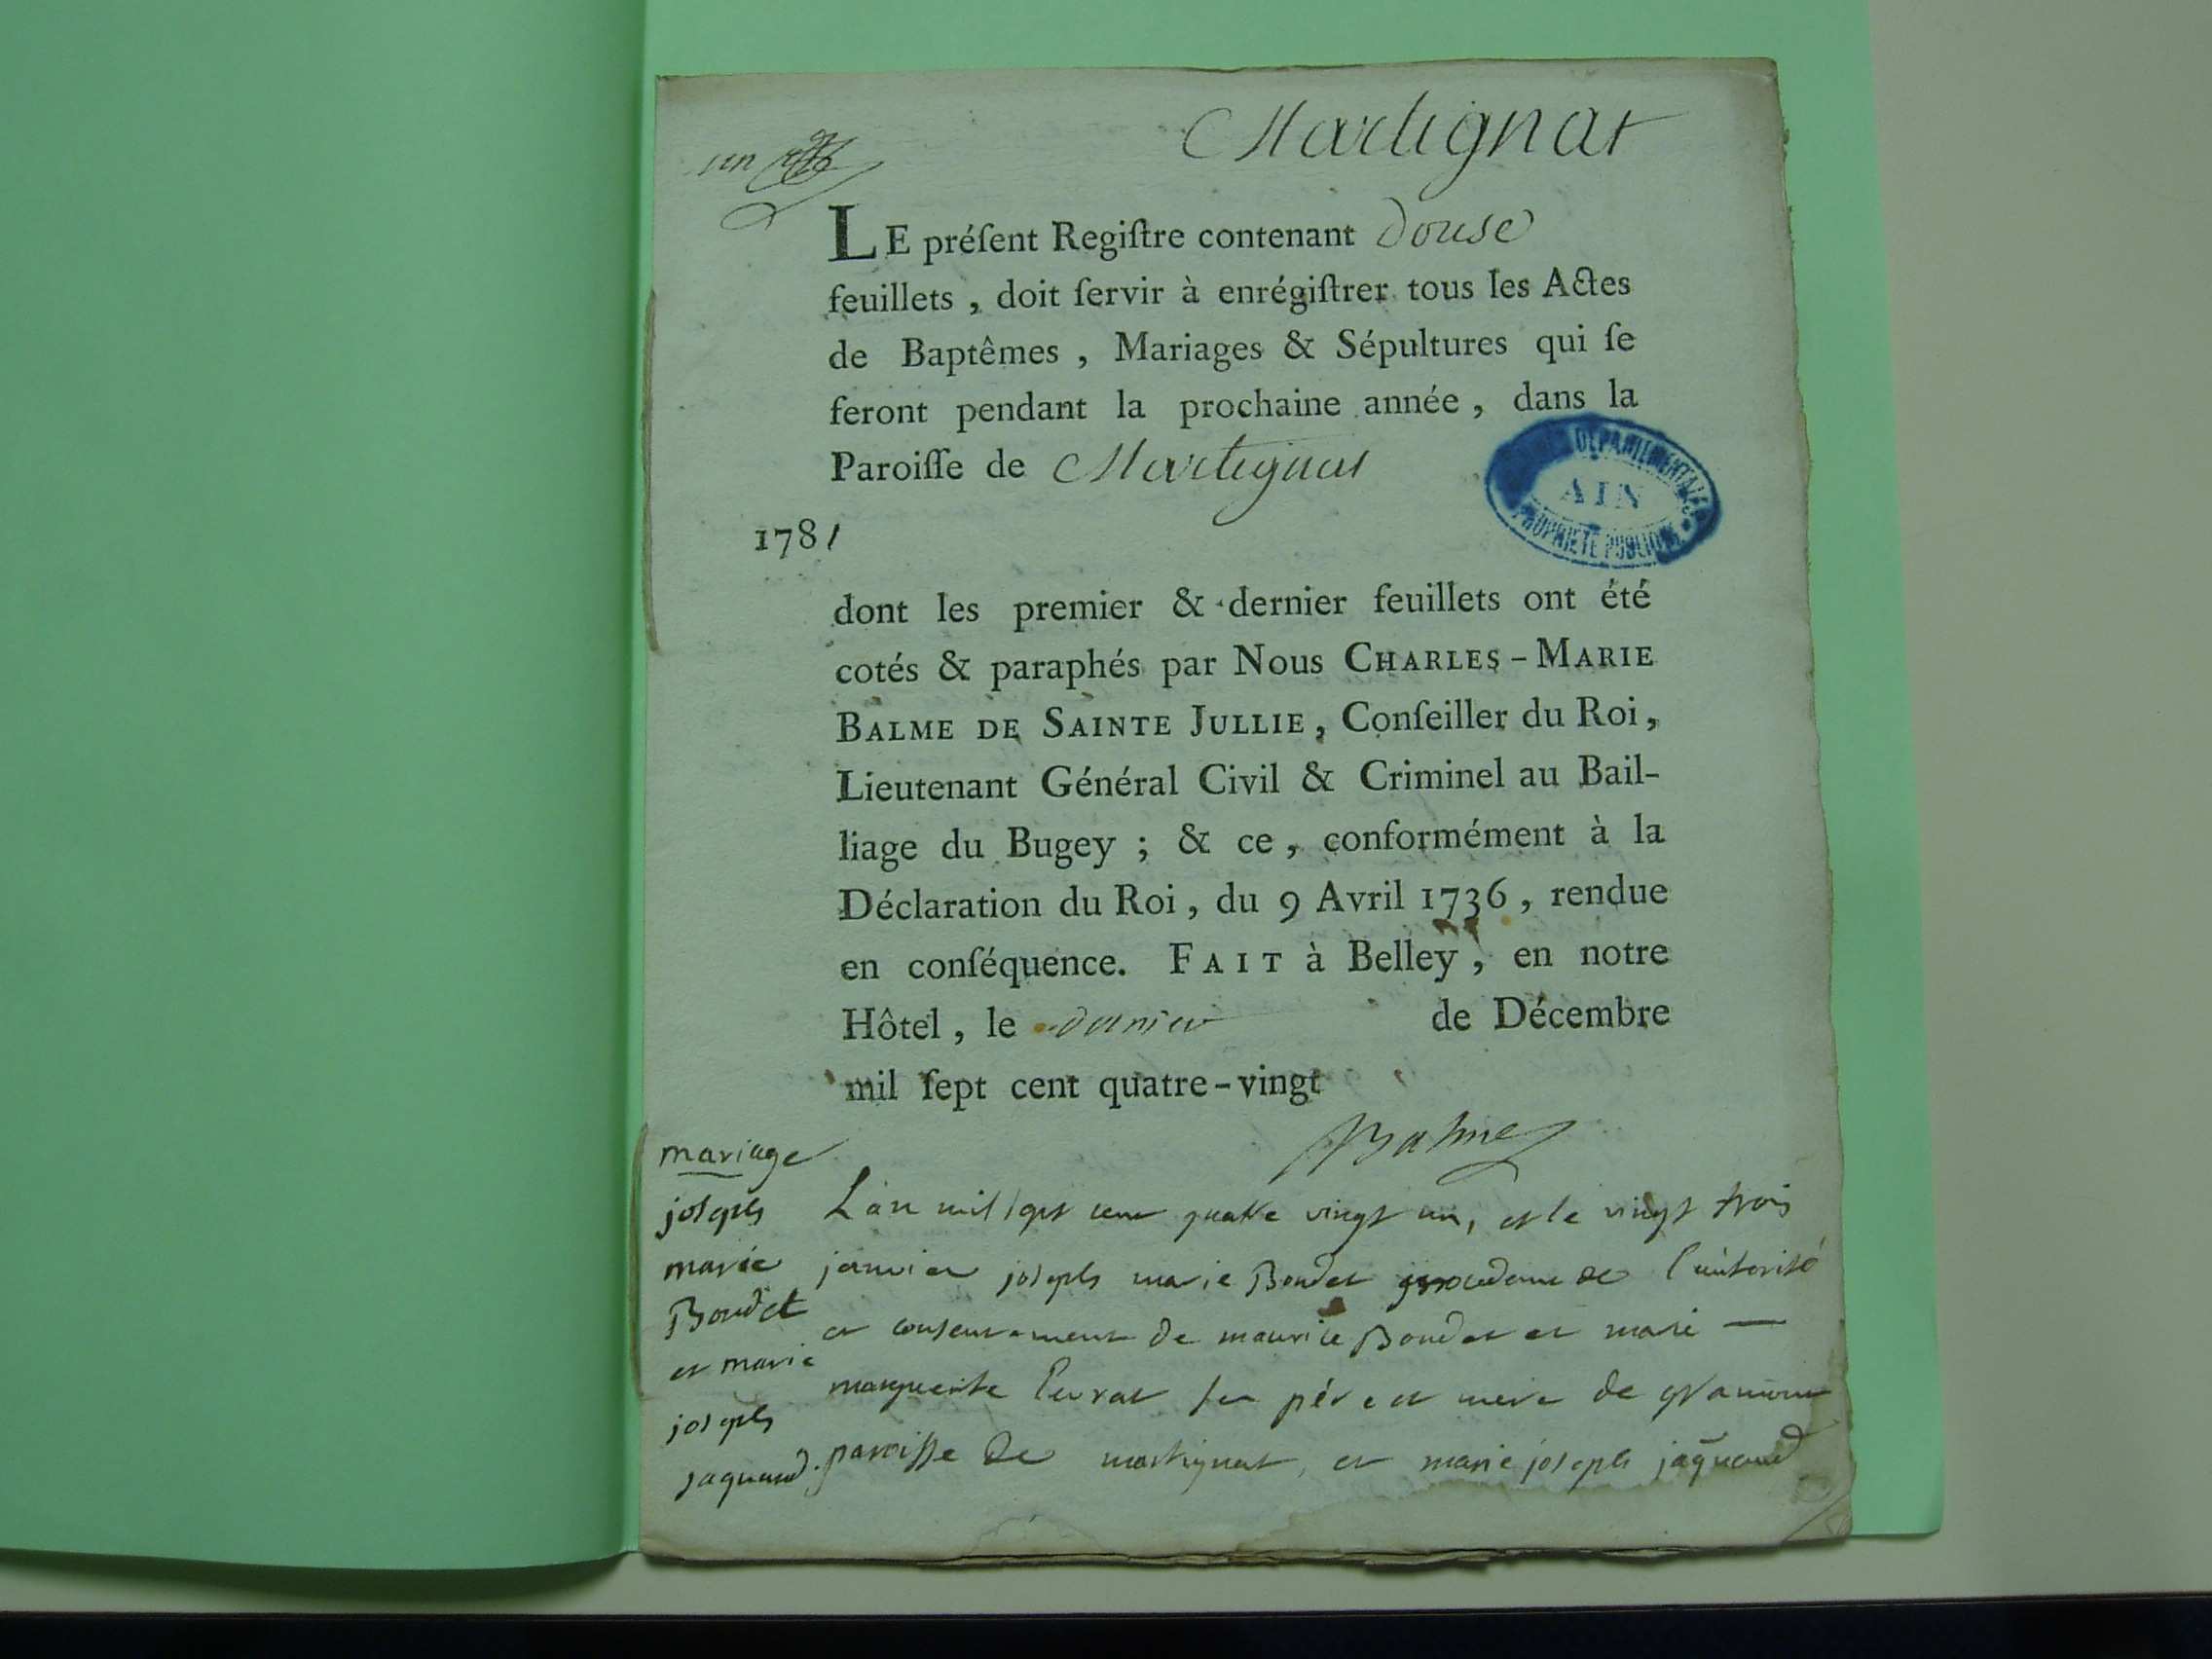 un
Martignat
LE préſent Regiſtre contenant douse
feuillets , doit ſervir à enrégiſtrer tous les Actes
de Baptêmes , Mariages & Sépultures qui ſe
feront pendant la prochaine année , dans la
Paroiſſe de Martignat
DEPARTEMENTALES
AIN
PROPRIETE PUBLIQUE
1781
dont les premier & dernier feuillets ont été
cotés & paraphés par Nous CHARLES-MARIE
BALME DE SAINTE JULLIE, Conſeiller du Roi,
Lieutenant Général Civil & Criminel au Bail-
liage du Bugey ; & ce, conformément à la
Déclaration du Roi, du 9 Avril 1736, rendue
en conſéquence. FAIT à Belley, en notre
Hôtel, le dernier de Décembre
mil ſept cent quatre-vingt
Balme
mariage
joseph
marie
Boudet
et marie
joseph
jaquand.
L'an mil sept cent quatre vingt un, et le vingt trois
janvier joseph marie Boudet procedant de l'autorité
et consentement de maurice Boudet et marie
marguerite ses père et mere de gramont
paroisse de martignat, et marie joseph jaquand